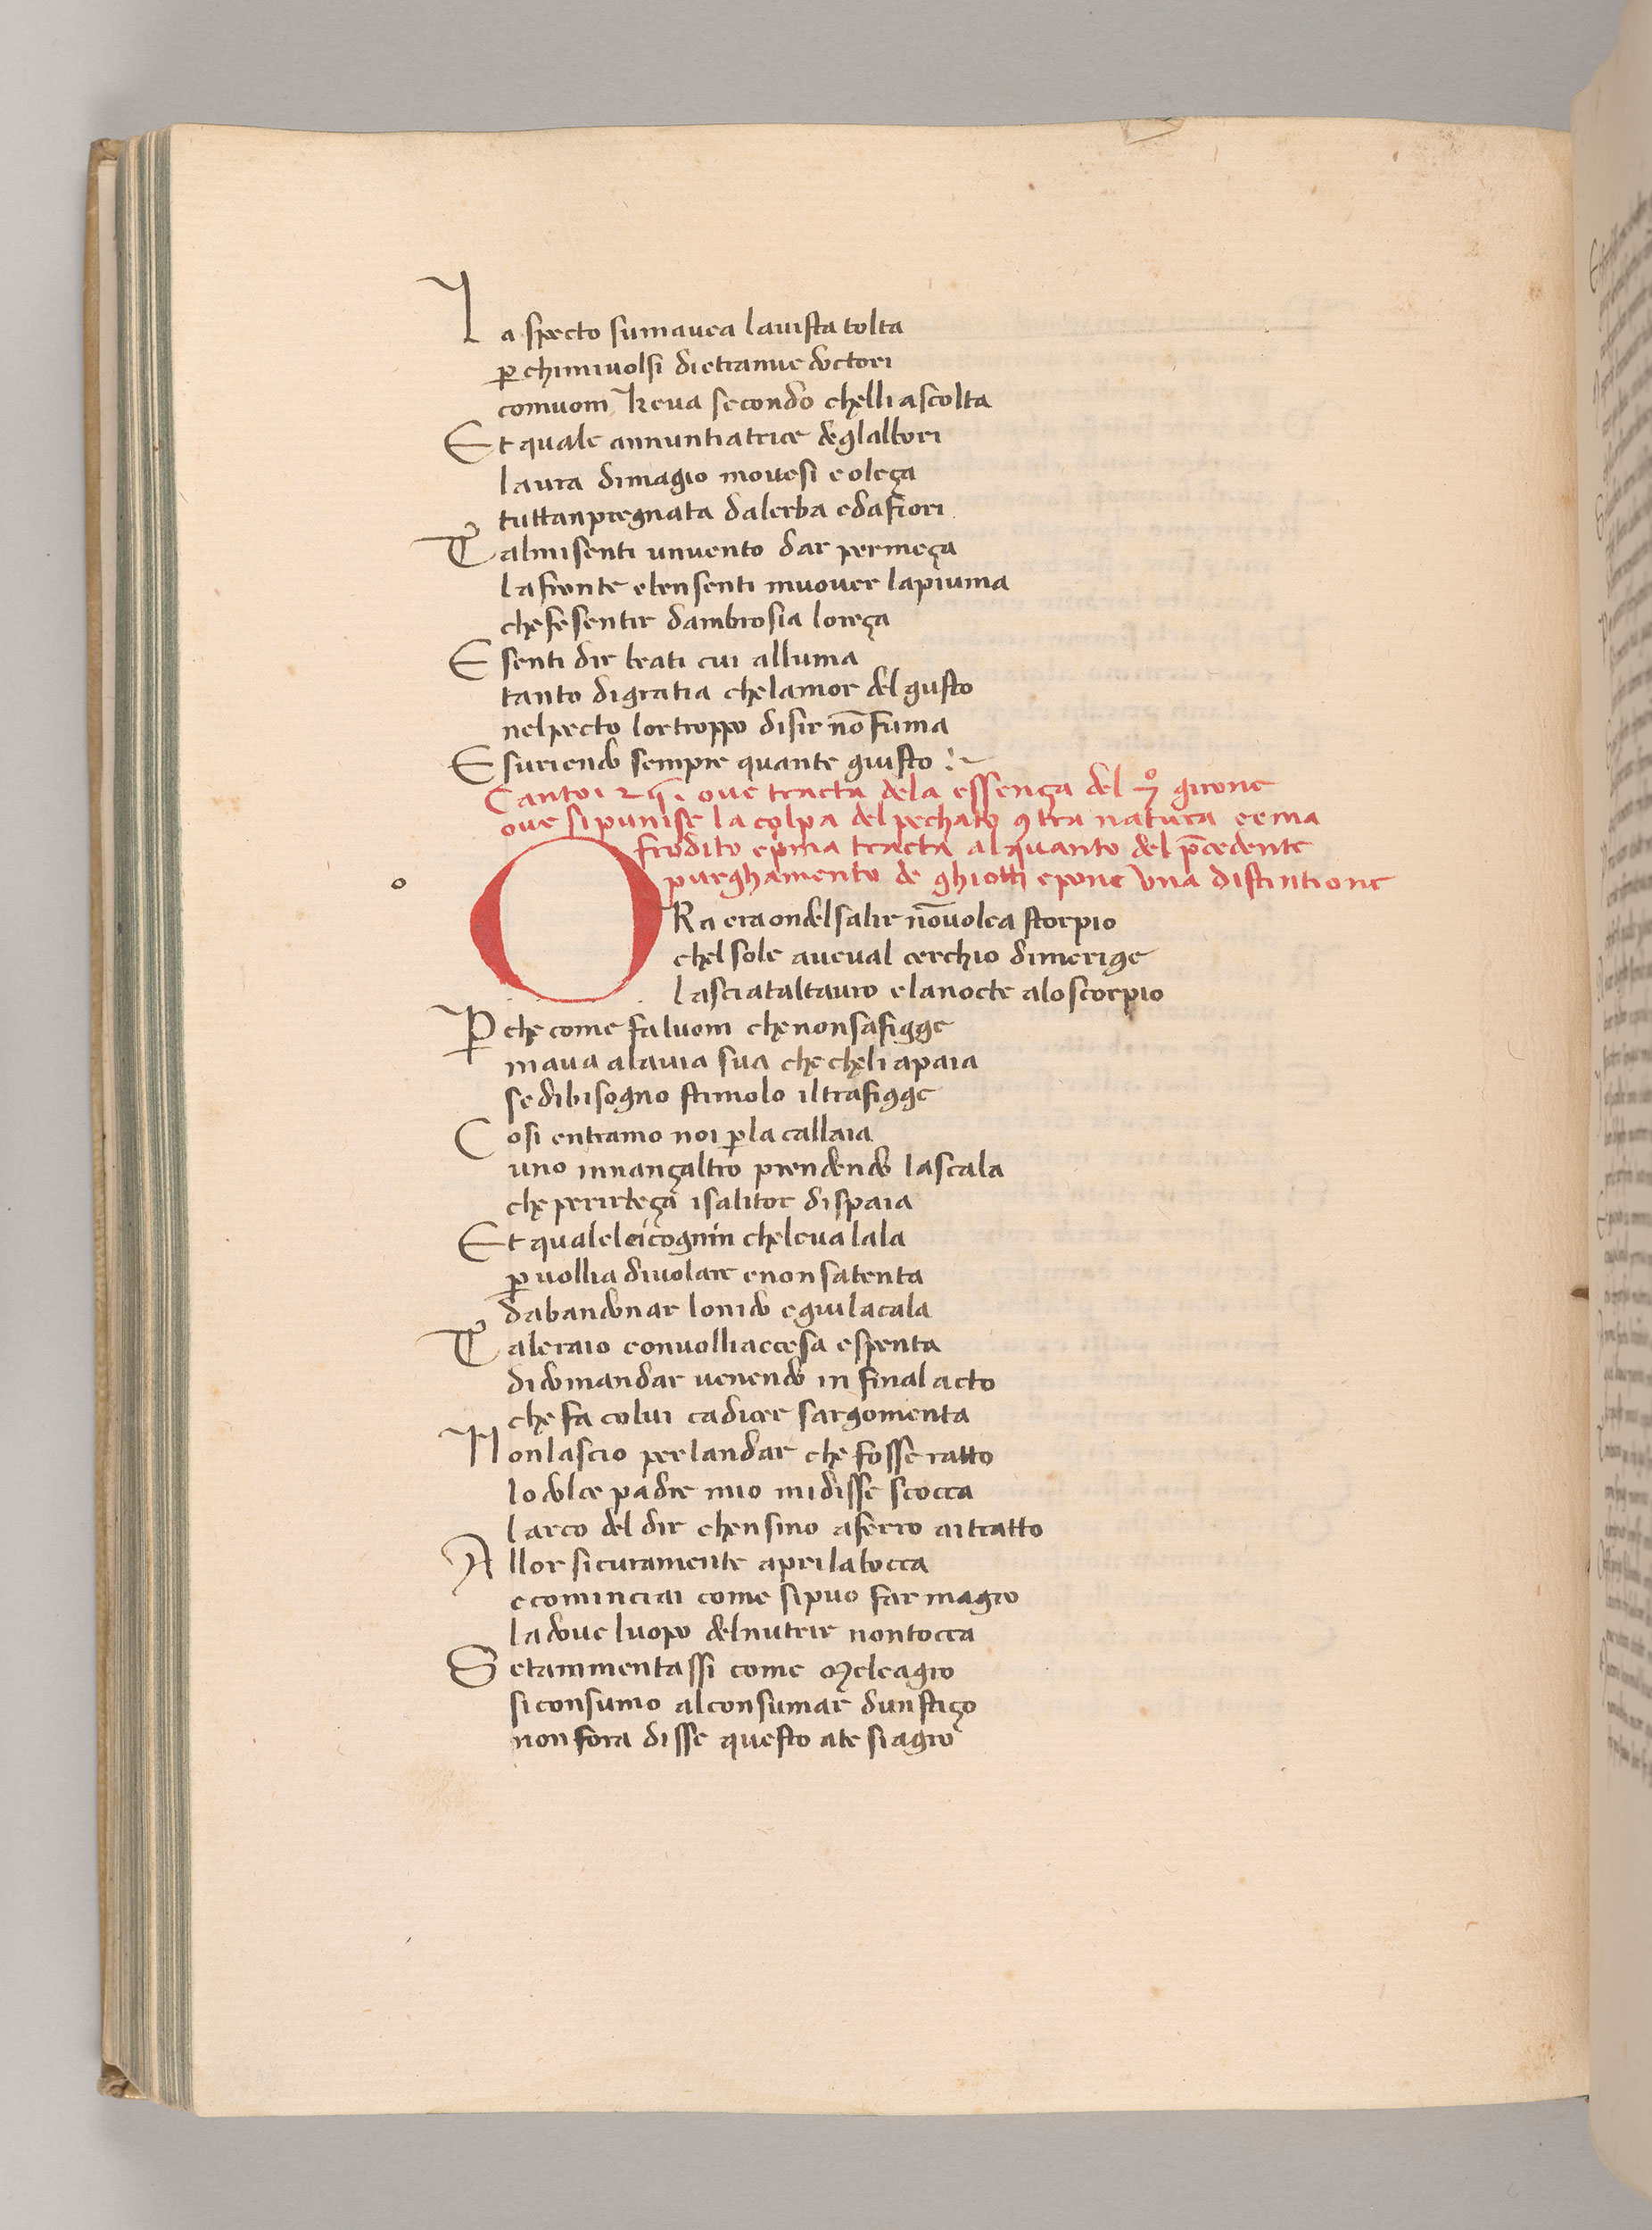 La specto sumavea lauista tolta
ꝑ chimiuolsi dietramie doctori
comuom keua secondo chelli ascolta
Et quale annuntiatrice deglalbori
laura dimagio mouesi e oleça
tuttanpregnata dalerba edafiori
Talmisenti unuento dar permeça
lafronte elensenti muouer lapiuma
chefesentir dambrosia loreça
E senti dir beati cui alluma
tanto digratia chelamor del gusto
nelpecto lortroppo disir nō fuma
Esuriendo sempre quante giusto
ove tracta dela essença del 7º girone
ove sipunise la colpa del pechato ꝯtra natura eerma
frodito epma tracta alquanto del p̄cedente
purghamento de ghiotti epone una distintione
o
ORa eraondelsalir nōuolea storpio
chelsole aueual cerchio dimerige
lasciataltauro elanocte aloscorpio
Ꝑche come faluom chenonsafigge
maua alauia sua che cheliapaia
se dibisogno stimolo iltrafigge
Cosi entramo noi ꝑla callaia
uno innançaltro prendendo lascala
che perirteça isalitor dispaia
Et qualeleicognin cheleua lala
ꝑ uollia diuolare enonsatenta
dabandonar lonido egiulacala
Taleraio conuolliaccesa espenta
didomandar uenendo in finalacto
che fa colui cadicer sargomenta
Nonlascio perlandar che fosse ratto
lodolce padre mio midisse scocca
larco del dir chensino aferro aitratto
Allor sicuramente aprilabocca
ecominciai come sipuo far magro
ladoue luopo delnutrir nontocca
Setammentassi come Meleagro
siconsumo alconsumar dunstiço
nonfora disse questo ate siagro